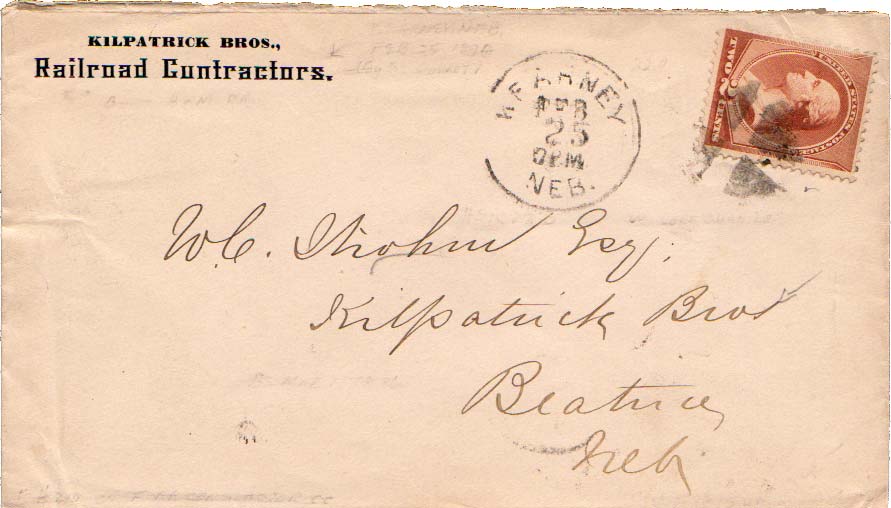 KILPATRICK BROS.,
Railroad Contractors.
KEARNEY
FEB
25
NEB.
UNITED STATES POSTAGE
TWO 2 CENTS
W.C. Strohm Esq.
Kilpatrick Bros
Beatrice
Neb